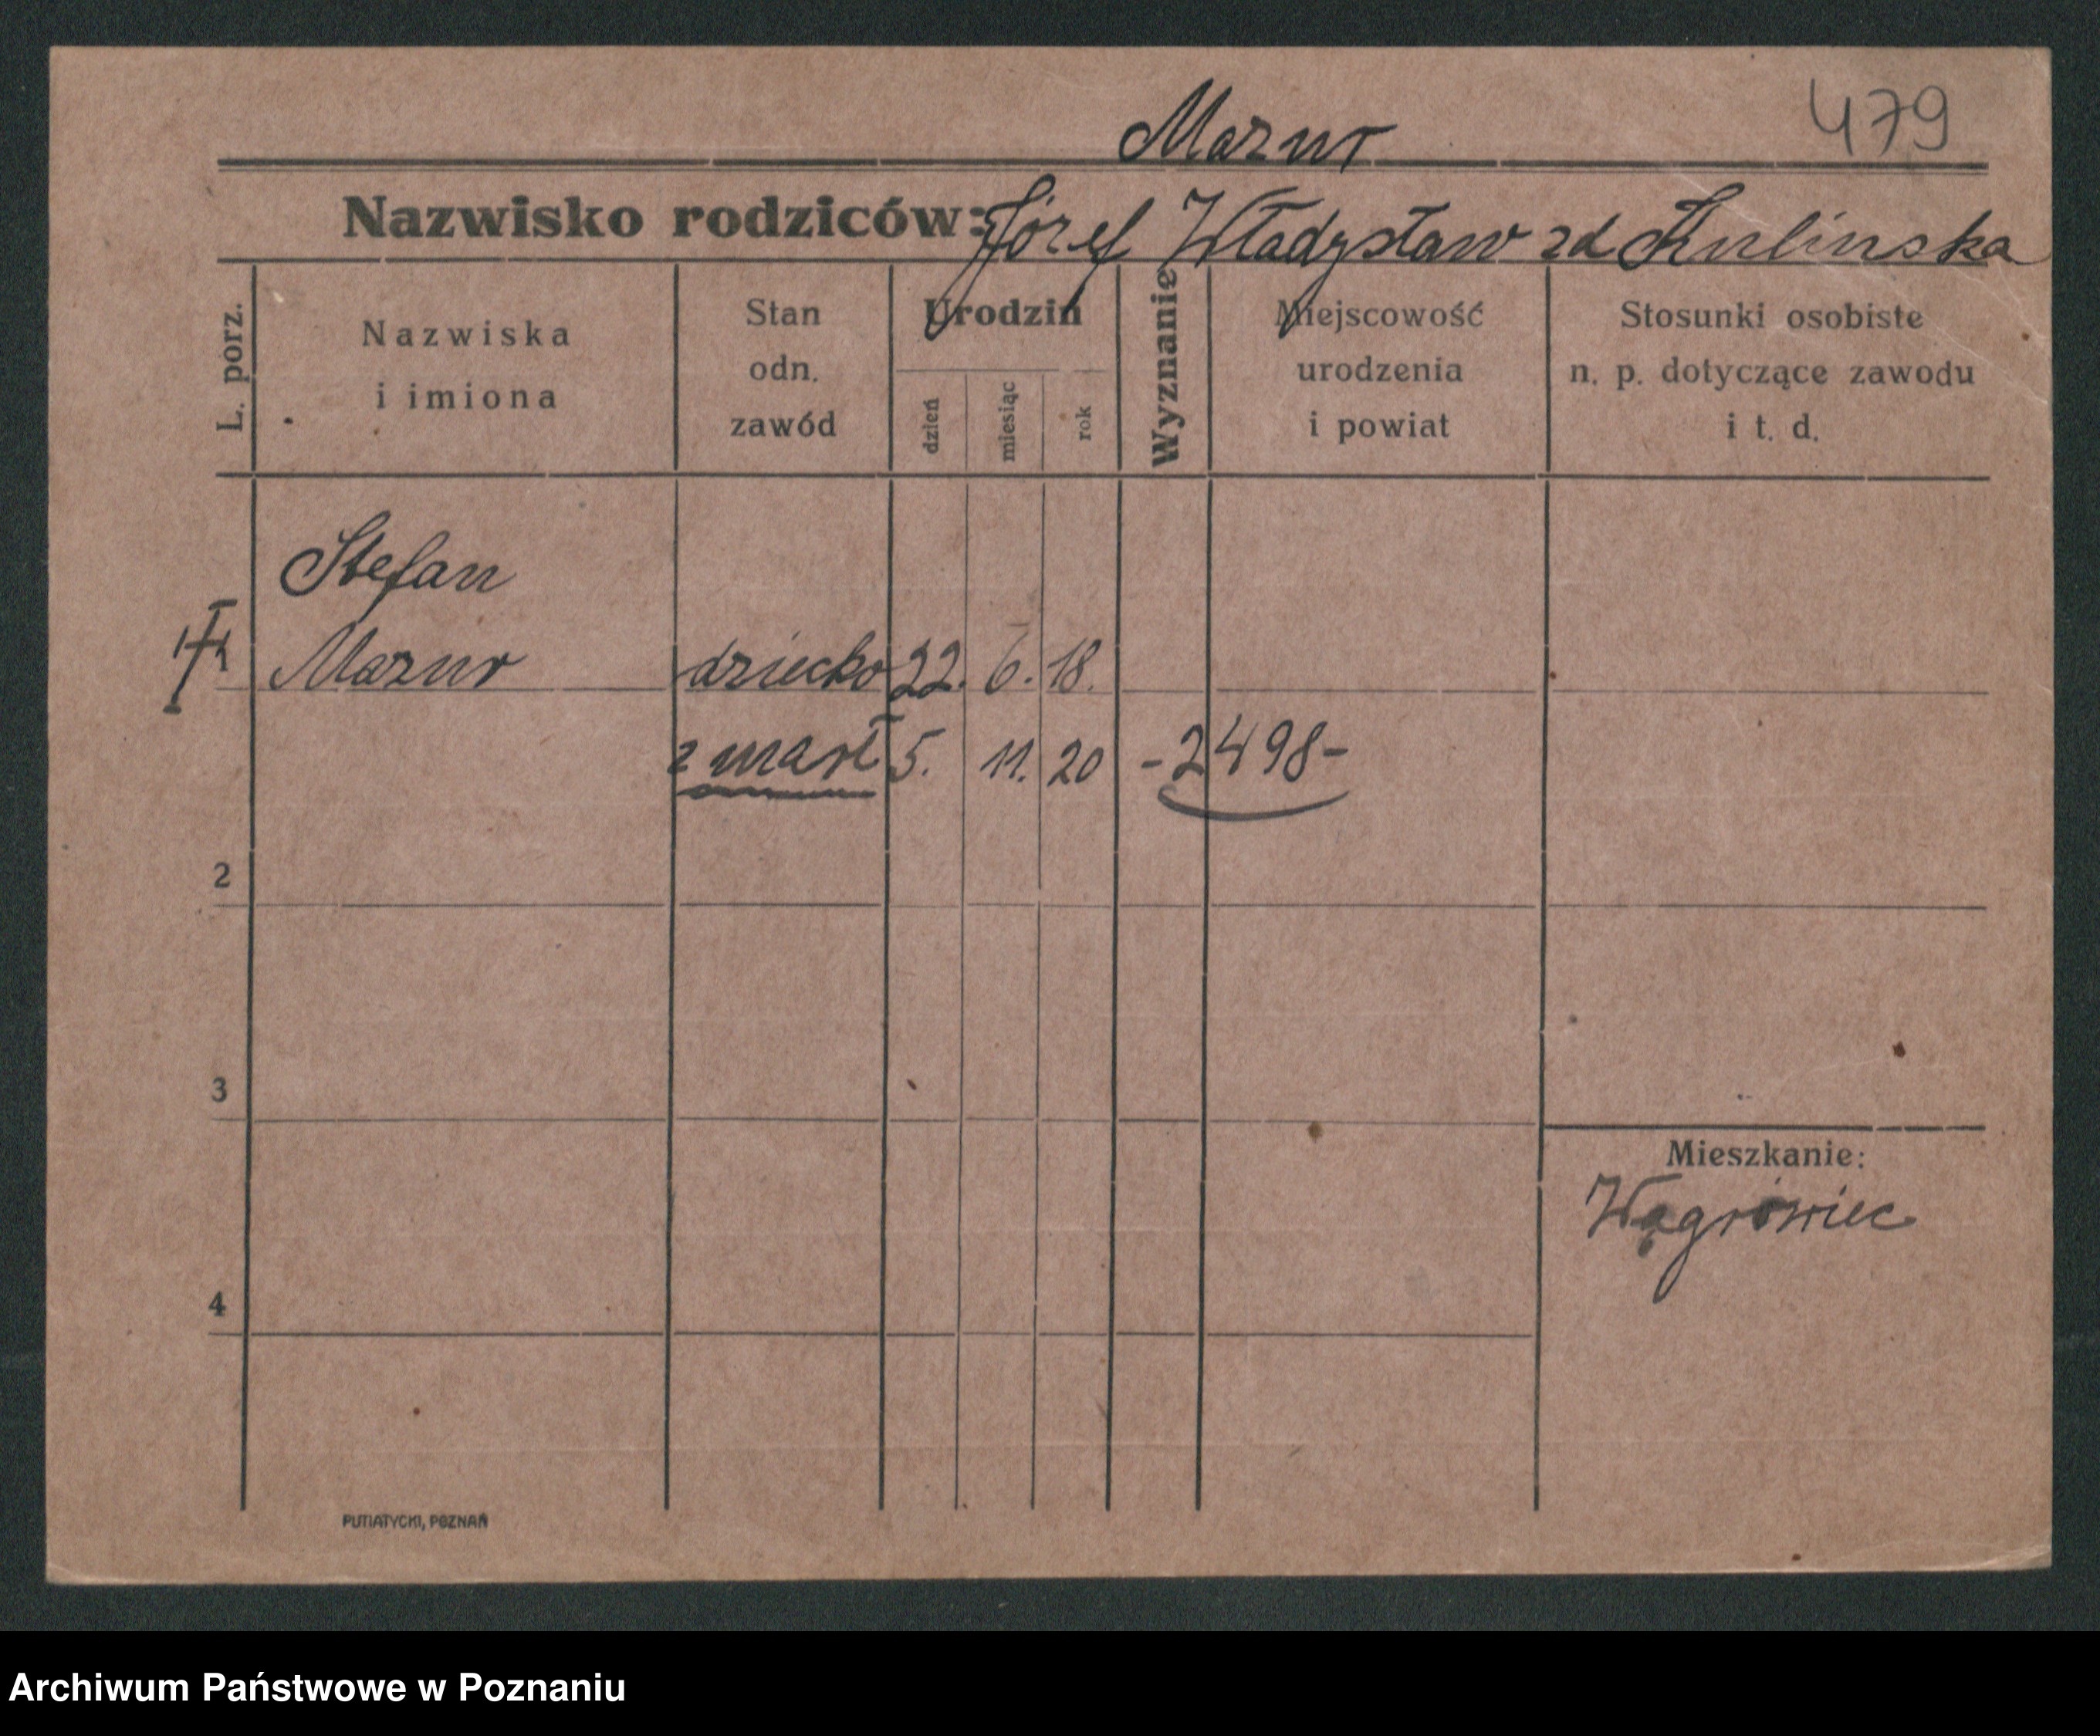 479
Mazur
Nazwisko rodziców: Józef Władysław zd Kulinska
L. porz.
Nazwiska
i imiona
Stan
odn.
zawód
Urodzin
dzień
miesiąc
rok
Wyznanie
Miejscowość
urodzenia
i powiat
Stosunki osobiste
n. p. dotyczące zawodu
i t. d.
Stefan
Mazur dziecko 22. 6. 18.
zmarł 5. 11. 20 -2498-
2
3
4
Mieszkanie:
Wągrówiec
PUTIATYCKI, POZNAŃ
Archiwum Państwowe w Poznaniu